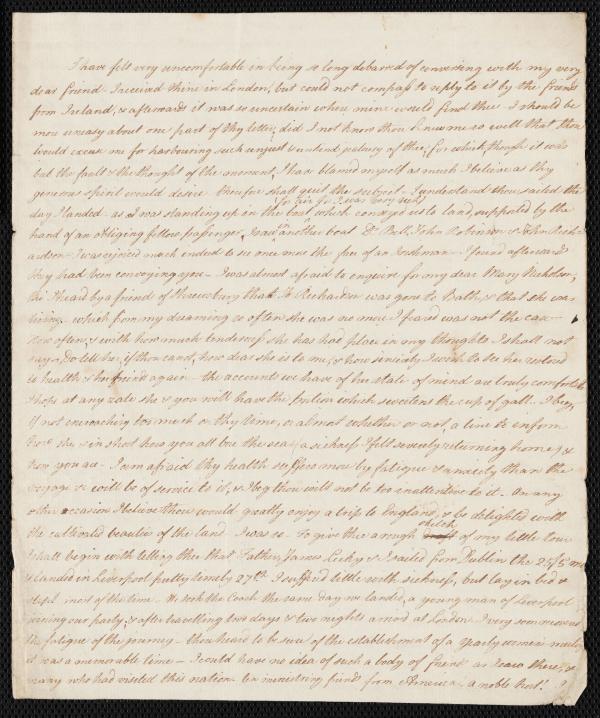 I have felt very uncomfortable in being so long debarred of conversing with my very
dear friend. I received thine in London, but could not compass to reply to it by the friends
from Ireland, & afterwards it was so uncertain when mine would find thee. I should be
more uneasy about one part of thy letter, did I not know thou knew me so well that thou
would excuse me for harbouring such unjust & unkind jealousy of thee, for which, though it was
but the fault & the thought of the moment, I have blamed myself as much I believe as thy
generous spirit would desire therefore shall quit the subject. I understand thou sailed the
day I landed. as I was standing up in the boat which conveyed us to land, supported by the
for air for I was very sick
hand of an obliging fellow passenger, I saw in another boat Dr Bell, John Robinson & John Rich-
ardson. I was rejoiced much indeed to see once more the face of an Irishman. I found afterwards
they had been conveying you – I was almost afraid to enquire for my dear Mary Nicholson,
tho' I heard by a friend of Shrewsbury that Richardson was gone to Bath, & that she was
living – which from my dreaming so often she was no more I feared was not the case –
How often, & with how much tenderness she has had place in my thoughts I shall not
say, do tell her, if thou canst, how dear she is to me, & how sincerely I wish to see her restored
to health & her friends again – the accounts we have of her state of mind are truly comfortable
I hope at any rate she & you will have the which sweetens the cup of gall. I beg,
if not encroaching too much on thy time, or almost whether or not, a line to inform
how she & in short how you all bore the sea / a sickness I felt severely returning home / &
how you are – I am afraid thy health suffers more by fatigue & anxiety than the
voyage &c will be of service to it, & I beg thou will not be too inattentive to it – On any
other occasion I believe thou would greatly enjoy a trip to England, & be delighted with
the cultivated beauties of the land – I was so – To give thee a rough sketch of my little tour
I shall begin with telling thee that Father, James Lecky & I sailed from Dublin the 25th 5th mo
& landed in Liverpool pretty timely 27th I suffered little with sickness, but lay in bed &
slept most of the time – We took the Coach the same day we landed, a young man of Liverpool
joining our party, & after travelling two days & two nights arrived at London – I very soon recovered
the fatigue of the journey – thou heard to be sure of the establishment of a yearly womens meeting
it was a memorable time – I could have no idea of such a body of friends as I saw there, &
many who had visited this nation – ten ministring friends from America, a noble host!